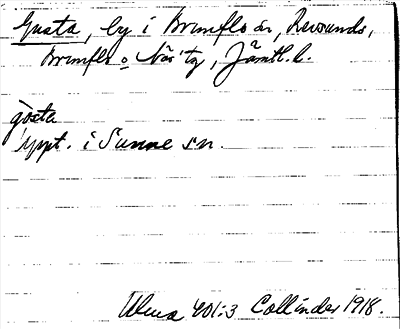 Gusta, by i Brunflo sn, Revsunds,
Brunflo o Näs tg, Jämtl. l.
gòsta
uppt. i Sunne sn.
Ulma 401:3 Collinder 1918.